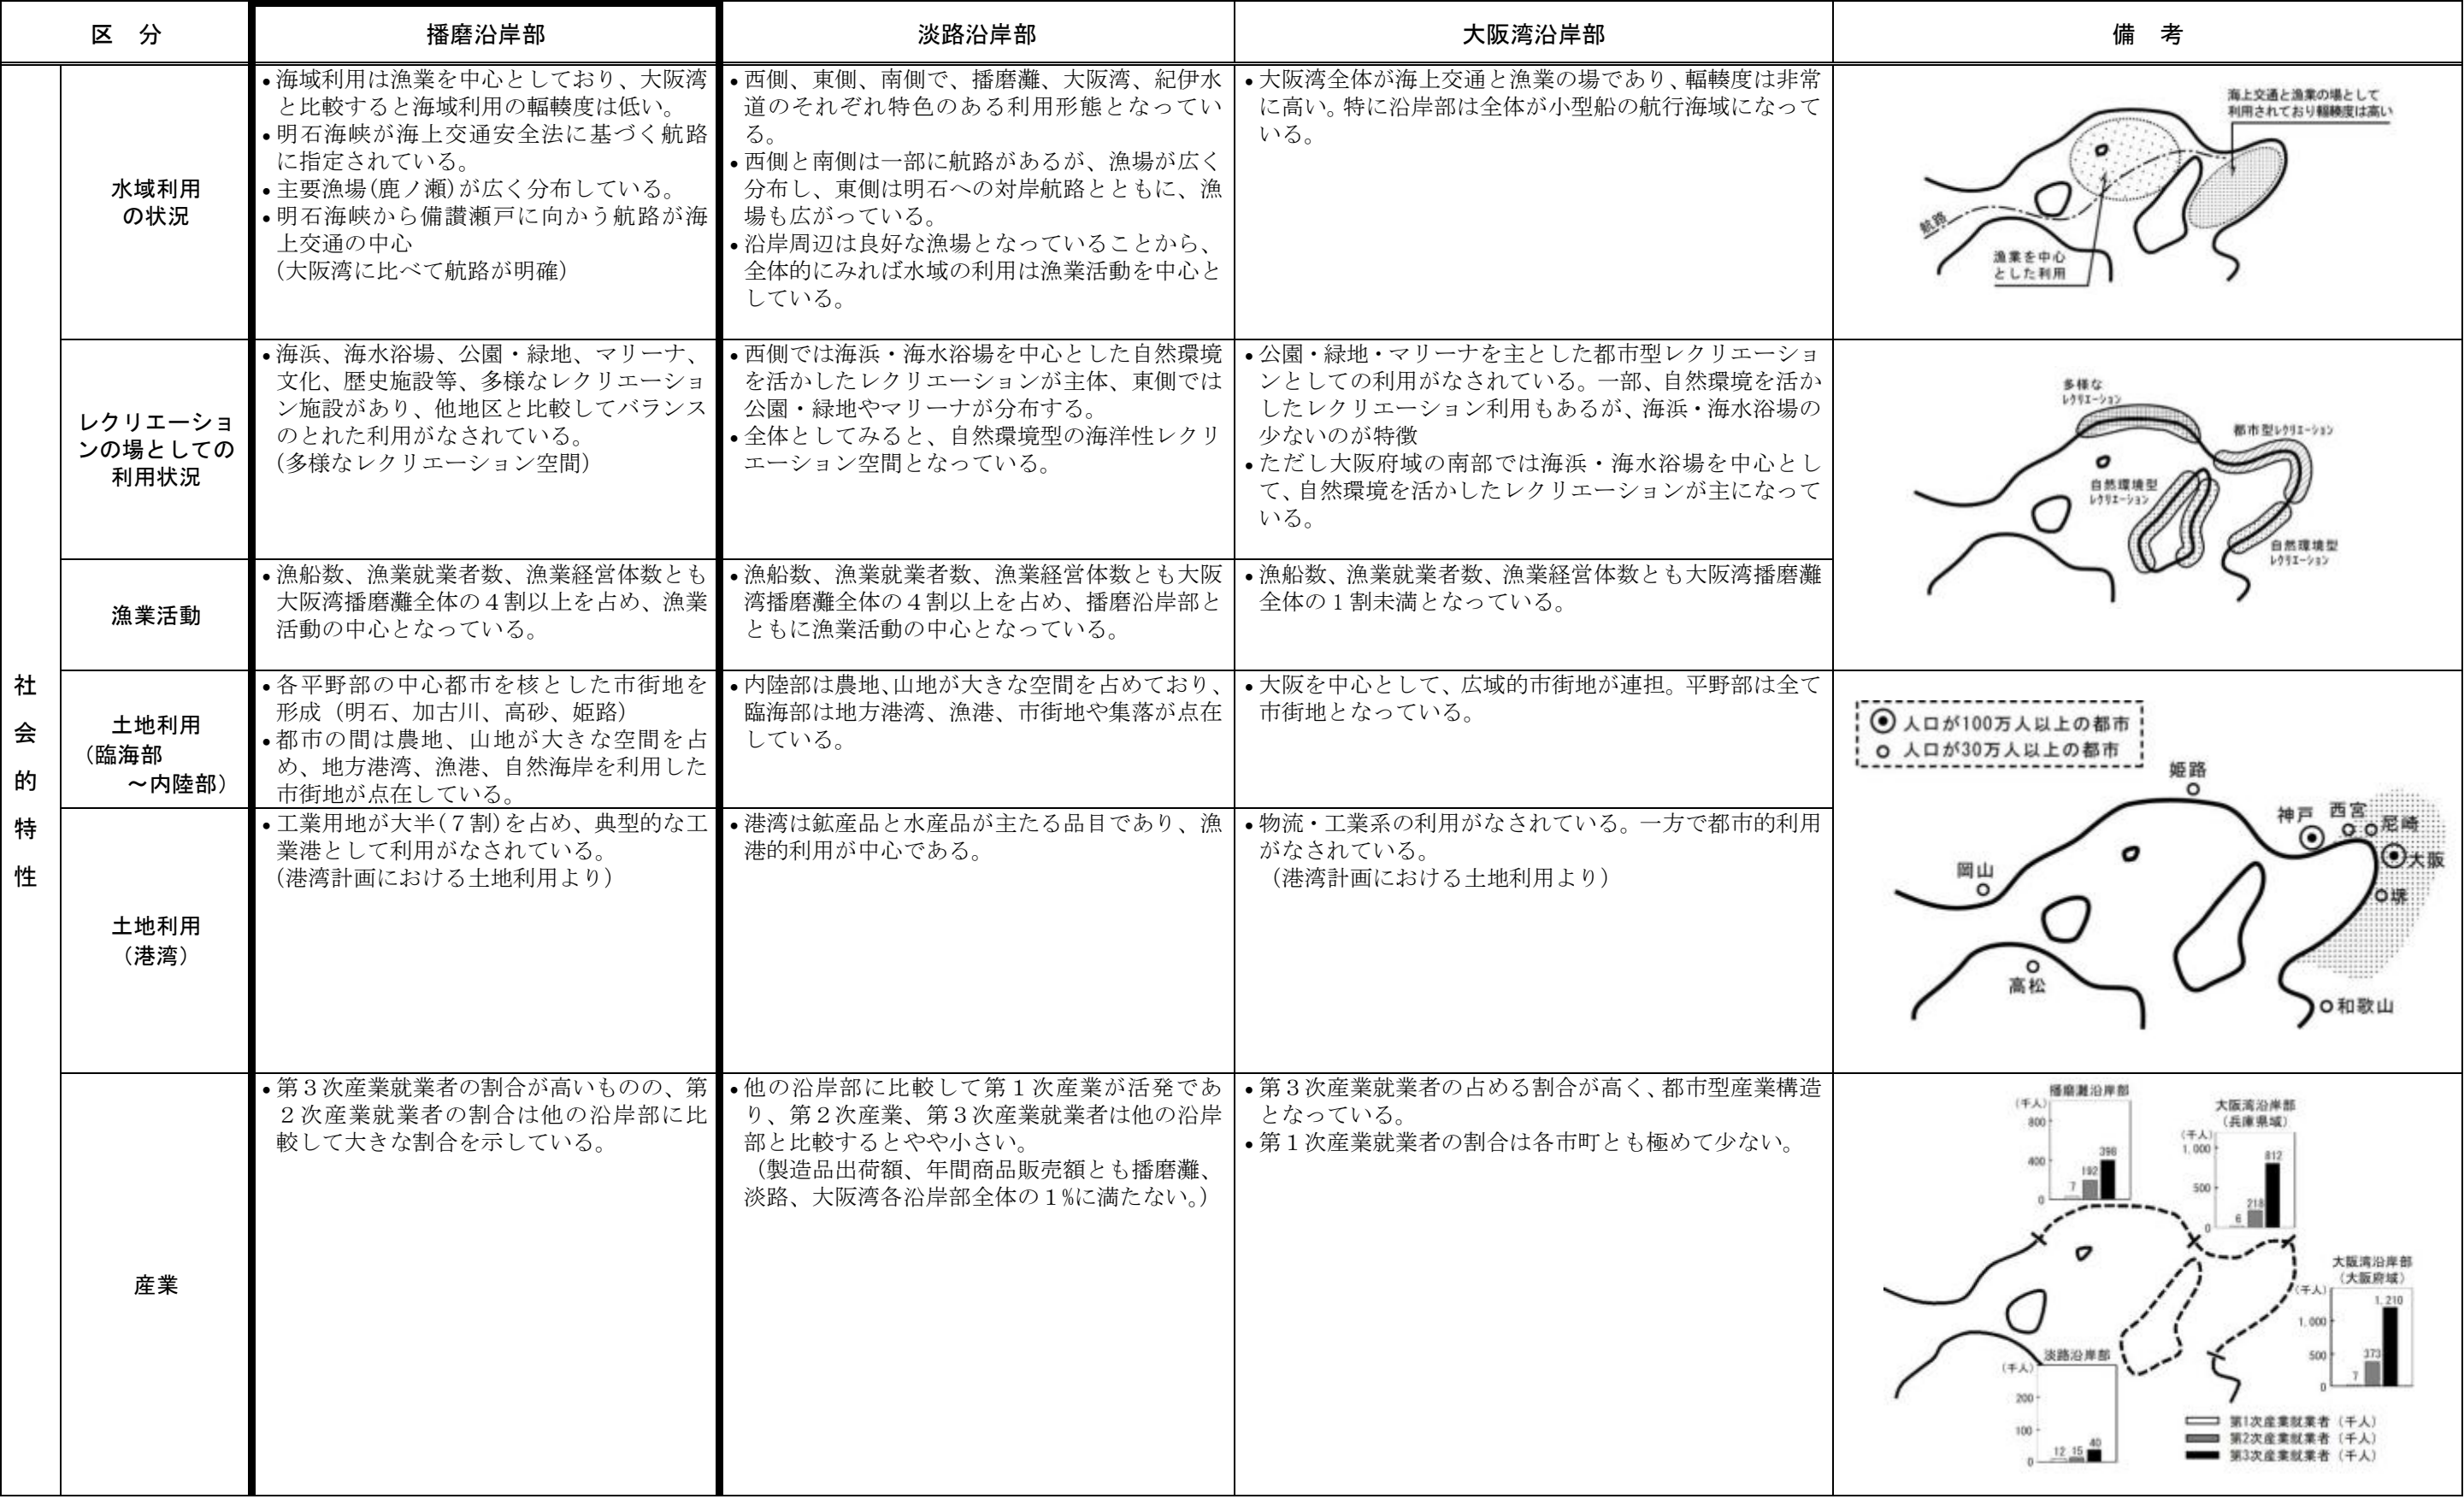 区　分
播磨沿岸部
淡路沿岸部
大阪湾沿岸部
備　考
社会的特性
水域利用
の状況
•海域利用は漁業を中心としており、大阪湾
と比較すると海域利用の輻輳度は低い。
•明石海峡が海上交通安全法に基づく航路
に指定されている。
•主要漁場(鹿ノ瀬)が広く分布している。
•明石海峡から備讃瀬戸に向かう航路が海
上交通の中心
(大阪湾に比べて航路が明確)
•西側、東側、南側で、播磨灘、大阪湾、紀伊水
道のそれぞれ特色のある利用形態となってい
る。
•西側と南側は一部に航路があるが、漁場が広く
分布し、東側は明石への対岸航路とともに、漁
場も広がっている。
•沿岸周辺は良好な漁場となっていることから、
全体的にみれば水域の利用は漁業活動を中心と
している。
•大阪湾全体が海上交通と漁業の場であり、輻輳度は非常
に高い。特に沿岸部は全体が小型船の航行海域になって
いる。
海上交通と漁業の場として
利用されており輻輳度は高い
航路
漁業を中心
とした利用
レクリエーショ
ンの場としての
利用状況
•海浜、海水浴場、公園・緑地、マリーナ、
文化、歴史施設等、多様なレクリエーショ
ン施設があり、他地区と比較してバランス
のとれた利用がなされている。
(多様なレクリエーション空間)
•西側では海浜・海水浴場を中心とした自然環境
を活かしたレクリエーションが主体、東側では
公園・緑地やマリーナが分布する。
•全体としてみると、自然環境型の海洋性レクリ
エーション空間となっている。
•公園・緑地・マリーナを主とした都市型レクリエーショ
ンとしての利用がなされている。一部、自然環境を活か
したレクリエーション利用もあるが、海浜・海水浴場の
少ないのが特徴
•ただし大阪府域の南部では海浜・海水浴場を中心とし
て、自然環境を活かしたレクリエーションが主になって
いる。
多様な
ﾚｸﾘｴｰｼｮﾝ
都市型ﾚｸﾘｴｰｼｮﾝ
自然環境型
ﾚｸﾘｴｰｼｮﾝ
自然環境型
ﾚｸﾘｴｰｼｮﾝ
漁業活動
•漁船数、漁業就業者数、漁業経営体数とも
大阪湾播磨灘全体の４割以上を占め、漁業
活動の中心となっている。
•漁船数、漁業就業者数、漁業経営体数とも大阪
湾播磨灘全体の４割以上を占め、播磨沿岸部と
ともに漁業活動の中心となっている。
•漁船数、漁業就業者数、漁業経営体数とも大阪湾播磨灘
全体の１割未満となっている。
土地利用
（臨海部
～内陸部）
•各平野部の中心都市を核とした市街地を
形成（明石、加古川、高砂、姫路）
•都市の間は農地、山地が大きな空間を占
め、地方港湾、漁港、自然海岸を利用した
市街地が点在している。
•内陸部は農地、山地が大きな空間を占めており、
臨海部は地方港湾、漁港、市街地や集落が点在
している。
•大阪を中心として、広域的市街地が連担。平野部は全て
市街地となっている。
人口が100万人以上の都市
人口が30万人以上の都市
姫路
神戸
西宮
尼崎
大阪
堺
岡山
高松
和歌山
土地利用
（港湾）
•工業用地が大半(７割)を占め、典型的な工
業港として利用がなされている。
(港湾計画における土地利用より)
•港湾は鉱産品と水産品が主たる品目であり、漁
港的利用が中心である。
•物流・工業系の利用がなされている。一方で都市的利用
がなされている。
（港湾計画における土地利用より）
産業
•第３次産業就業者の割合が高いものの、第
２次産業就業者の割合は他の沿岸部に比
較して大きな割合を示している。
•他の沿岸部に比較して第１次産業が活発であ
り、第２次産業、第３次産業就業者は他の沿岸
部と比較するとやや小さい。
（製造品出荷額、年間商品販売額とも播磨灘、
淡路、大阪湾各沿岸部全体の１%に満たない。）
•第３次産業就業者の占める割合が高く、都市型産業構造
となっている。
•第１次産業就業者の割合は各市町とも極めて少ない。
播磨灘沿岸部
(千人)
800
400
0
7
192
398
大阪湾沿岸部
（兵庫県域）
(千人)
1,000
500
0
6
218
812
大阪湾沿岸部
（大阪府域）
(千人)
1,000
500
0
7
373
1,210
淡路沿岸部
(千人)
200
100
0
12
15
40
第1次産業就業者（千人）
第2次産業就業者（千人）
第3次産業就業者（千人）